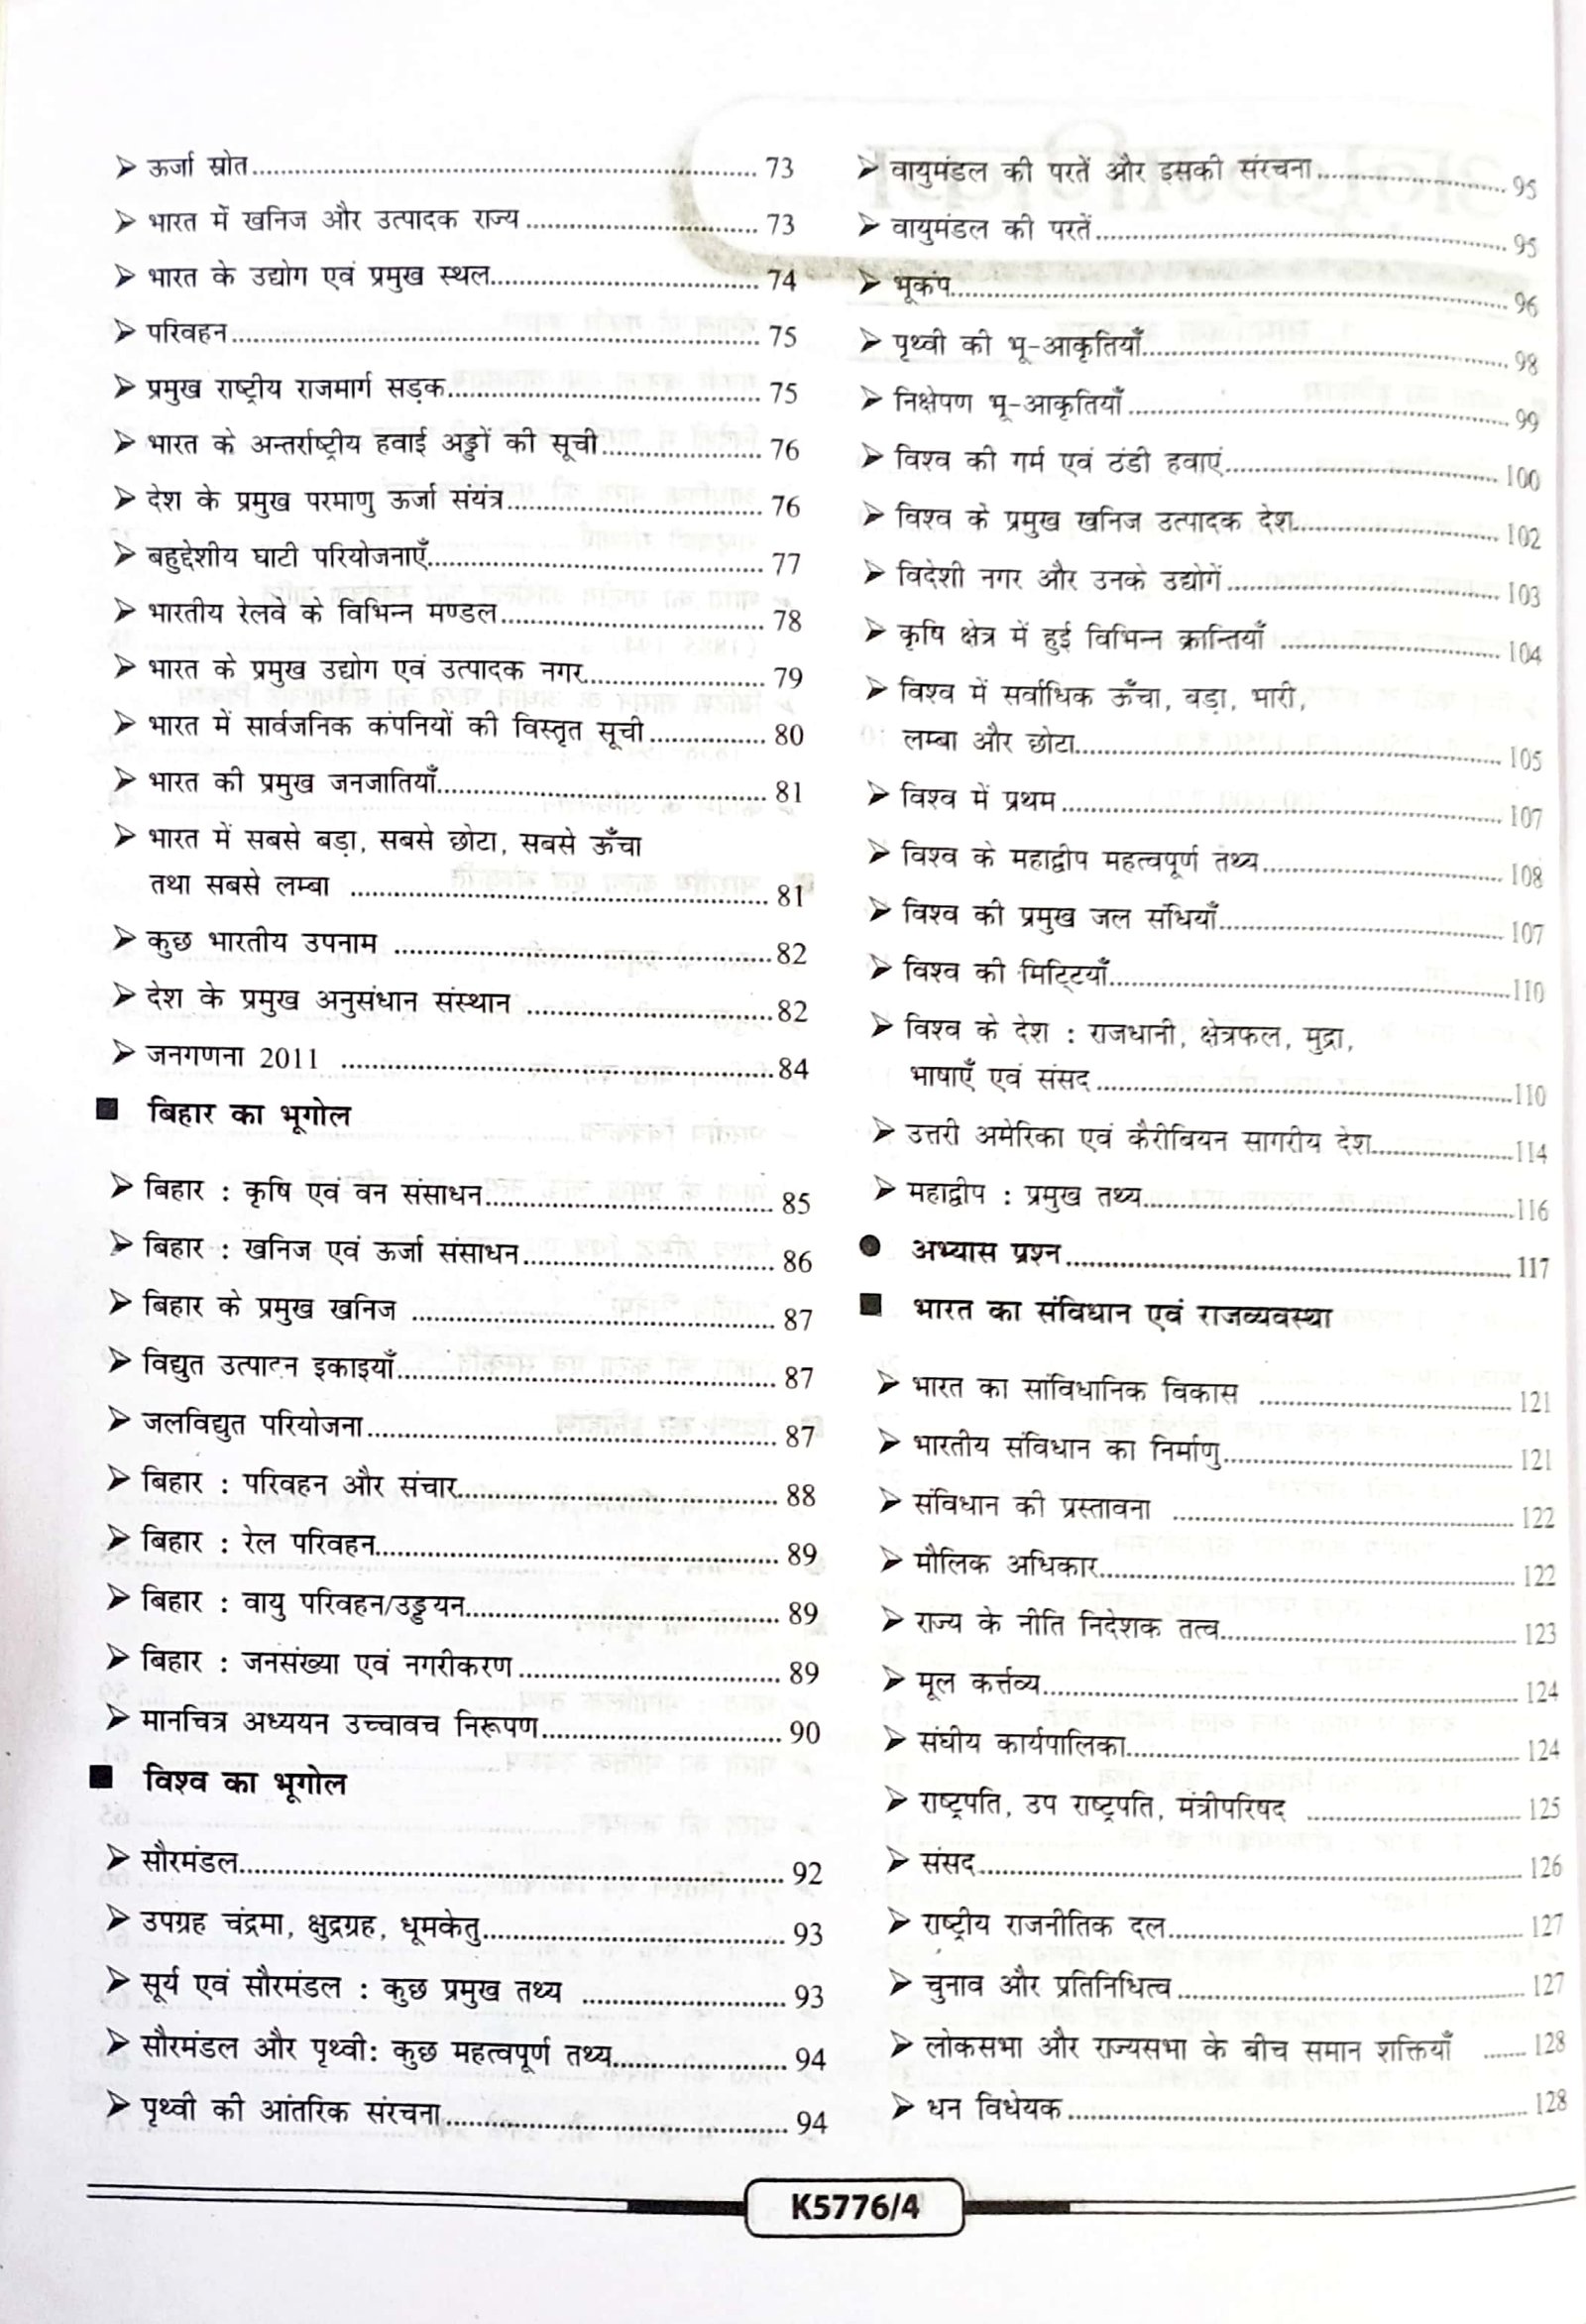 ➢ ऊर्जा स्रोत........................................ 73
➢ भारत में खनिज और उत्पादक राज्य.................... 73
➢ भारत के उद्योग एवं प्रमुख स्थल.................... 74
➢ परिवहन........................................ 75
➢ प्रमुख राष्ट्रीय राजमार्ग सड़क.................... 75
➢ भारत के अन्तर्राष्ट्रीय हवाई अड्डों की सूची.................... 76
➢ देश के प्रमुख परमाणु ऊर्जा संयंत्र.................... 76
➢ बहुद्देशीय घाटी परियोजनाएँ.................... 77
➢ भारतीय रेलवे के विभिन्न मण्डल.................... 78
➢ भारत के प्रमुख उद्योग एवं उत्पादक नगर.................... 79
➢ भारत में सार्वजनिक कंपनियों की विस्तृत सूची.................... 80
➢ भारत की प्रमुख जनजातियाँ.................... 81
➢ भारत में सबसे बड़ा, सबसे छोटा, सबसे ऊँचा
तथा सबसे लम्बा .................... 81
➢ कुछ भारतीय उपनाम .................... 82
➢ देश के प्रमुख अनुसंधान संस्थान .................... 82
➢ जनगणना 2011 .................... 84
■ बिहार का भूगोल
➢ बिहार : कृषि एवं वन संसाधन.................... 85
➢ बिहार : खनिज एवं ऊर्जा संसाधन.................... 86
➢ बिहार के प्रमुख खनिज .................... 87
➢ विद्युत उत्पादन इकाइयाँ.................... 87
➢ जलविद्युत परियोजना.................... 87
➢ बिहार : परिवहन और संचार.................... 88
➢ बिहार : रेल परिवहन.................... 89
➢ बिहार : वायु परिवहन/उड्डयन.................... 89
➢ बिहार : जनसंख्या एवं नगरीकरण.................... 89
➢ मानचित्र अध्ययन उच्चावच निरूपण.................... 90
■ विश्व का भूगोल
➢ सौरमंडल.................... 92
➢ उपग्रह चंद्रमा, क्षुद्रग्रह, धूमकेतु.................... 93
➢ सूर्य एवं सौरमंडल : कुछ प्रमुख तथ्य .................... 93
➢ सौरमंडल और पृथ्वी: कुछ महत्वपूर्ण तथ्य.................... 94
➢ पृथ्वी की आंतरिक संरचना.................... 94
➢ वायुमंडल की परतें और इसकी संरचना.................... 95
➢ वायुमंडल की परतें.................... 95
➢ भूकंप.................... 96
➢ पृथ्वी की भू-आकृतियाँ.................... 98
➢ निक्षेपण भू-आकृतियाँ.................... 99
➢ विश्व की गर्म एवं ठंडी हवाएं.................... 100
➢ विश्व के प्रमुख खनिज उत्पादक देश.................... 102
➢ विदेशी नगर और उनके उद्योगें.................... 103
➢ कृषि क्षेत्र में हुई विभिन्न क्रान्तियाँ .................... 104
➢ विश्व में सर्वाधिक ऊँचा, बड़ा, भारी,
लम्बा और छोटा.................... 105
➢ विश्व में प्रथम.................... 107
➢ विश्व के महाद्वीप महत्वपूर्ण तथ्य.................... 108
➢ विश्व की प्रमुख जल संधियाँ.................... 107
➢ विश्व की मिट्टियाँ.................... 110
➢ विश्व के देश : राजधानी, क्षेत्रफल, मुद्रा,
भाषाएँ एवं संसद.................... 110
➢ उत्तरी अमेरिका एवं कैरीवियन सागरीय देश.................... 114
➢ महाद्वीप : प्रमुख तथ्य.................... 116
● अभ्यास प्रश्न.................... 117
■ भारत का संविधान एवं राजव्यवस्था
➢ भारत का सांविधानिक विकास .................... 121
➢ भारतीय संविधान का निर्माणु.................... 121
➢ संविधान की प्रस्तावना .................... 122
➢ मौलिक अधिकार.................... 122
➢ राज्य के नीति निदेशक तत्व.................... 123
➢ मूल कर्त्तव्य.................... 124
➢ संघीय कार्यपालिका.................... 124
➢ राष्ट्रपति, उप राष्ट्रपति, मंत्रीपरिषद .................... 125
➢ संसद.................... 126
➢ राष्ट्रीय राजनीतिक दल.................... 127
➢ चुनाव और प्रतिनिधित्व.................... 127
➢ लोकसभा और राज्यसभा के बीच समान शक्तियाँ ....... 128
➢ धन विधेयक.................... 128
K5776/4